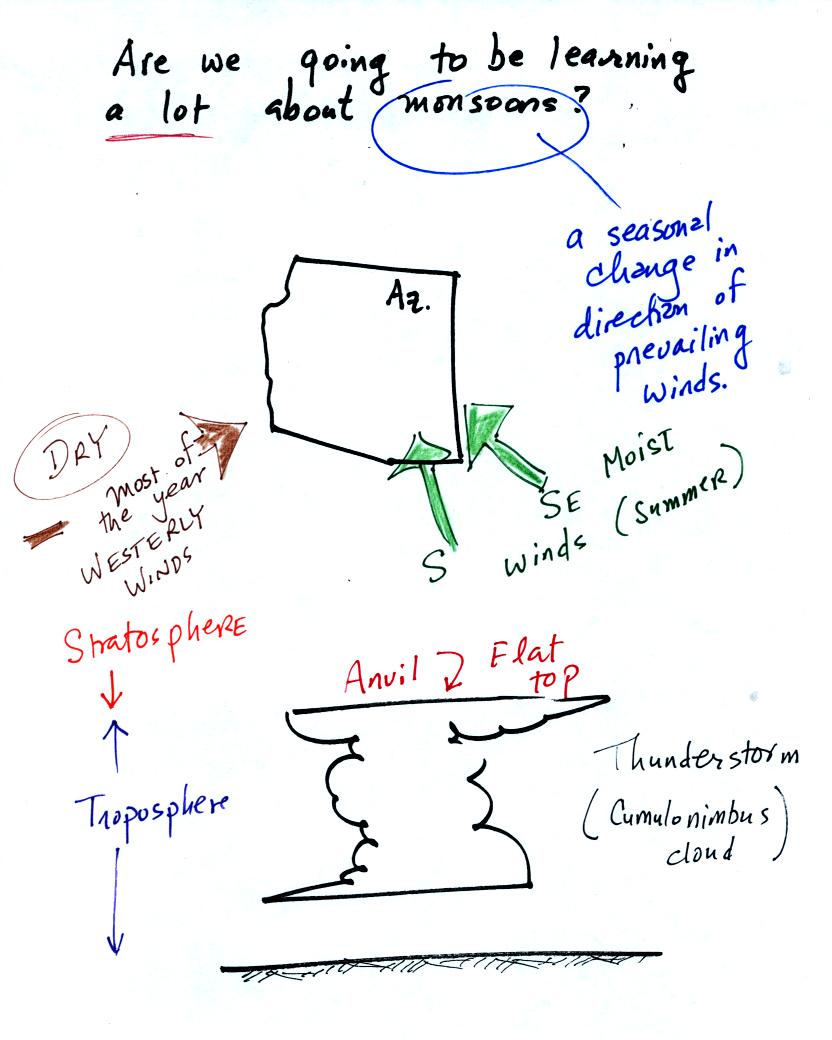 Are we going to be learning
a lot about monsoons?
a seasonal
change in
direction of
prevailing
winds.
Az.
DRY
most of
the year
WESTERLY
WINDS
SE
S
winds
MOIST
(SUMMER)
StratosphERE
Anvil
Flat
top
Troposphere
Thunderstorm
(Cumulonimbus
cloud)